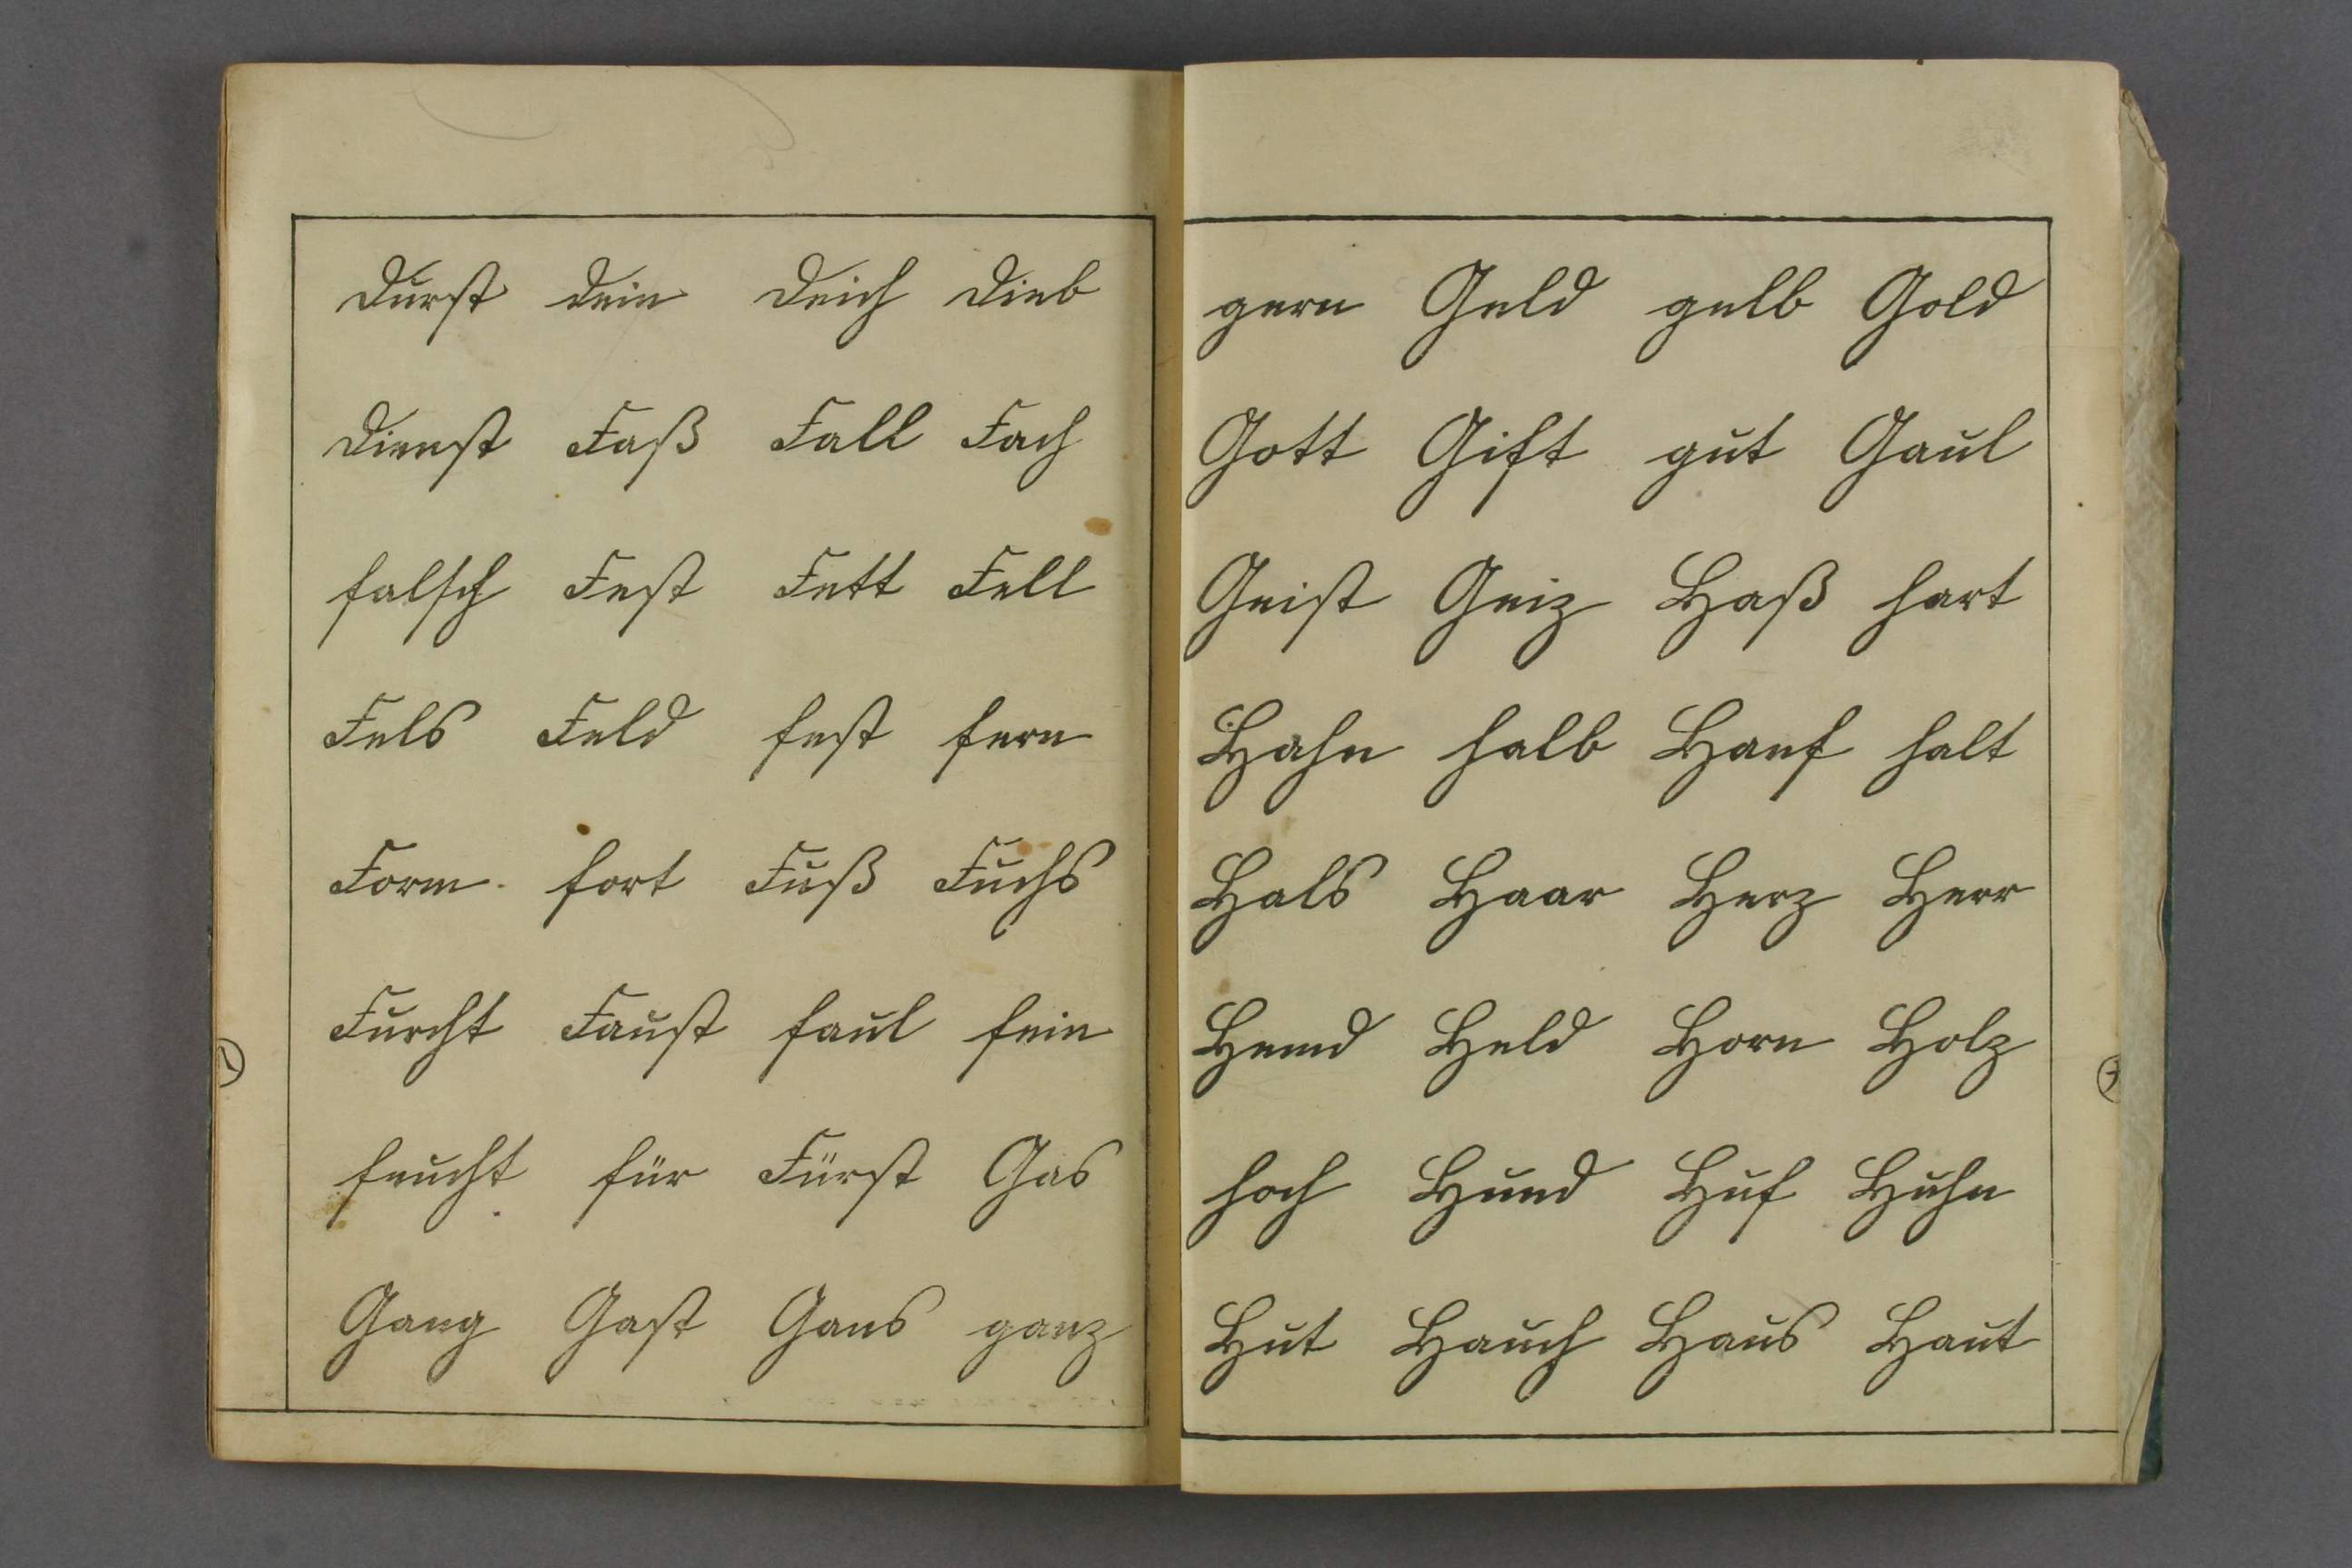 Durst dein Deich Dieb
Dienst Faß Fall Fach
falsch Fest Fett Fell
Fels Feld fest fern
Form fort Fuß Fuchs
Furcht Faust faul fein
feucht für Fürst Gas
Gang Gast Gans ganz
gern Geld gelb Gold
Gott Gift gut Gaul
Geist Geiz Haß hart
Hahn halb Hanf halt
Hals Haar Herz Herr
Hemd Held Horn Holz
hoch Hund Huf Huhn
Hut Hauch Haus Haut